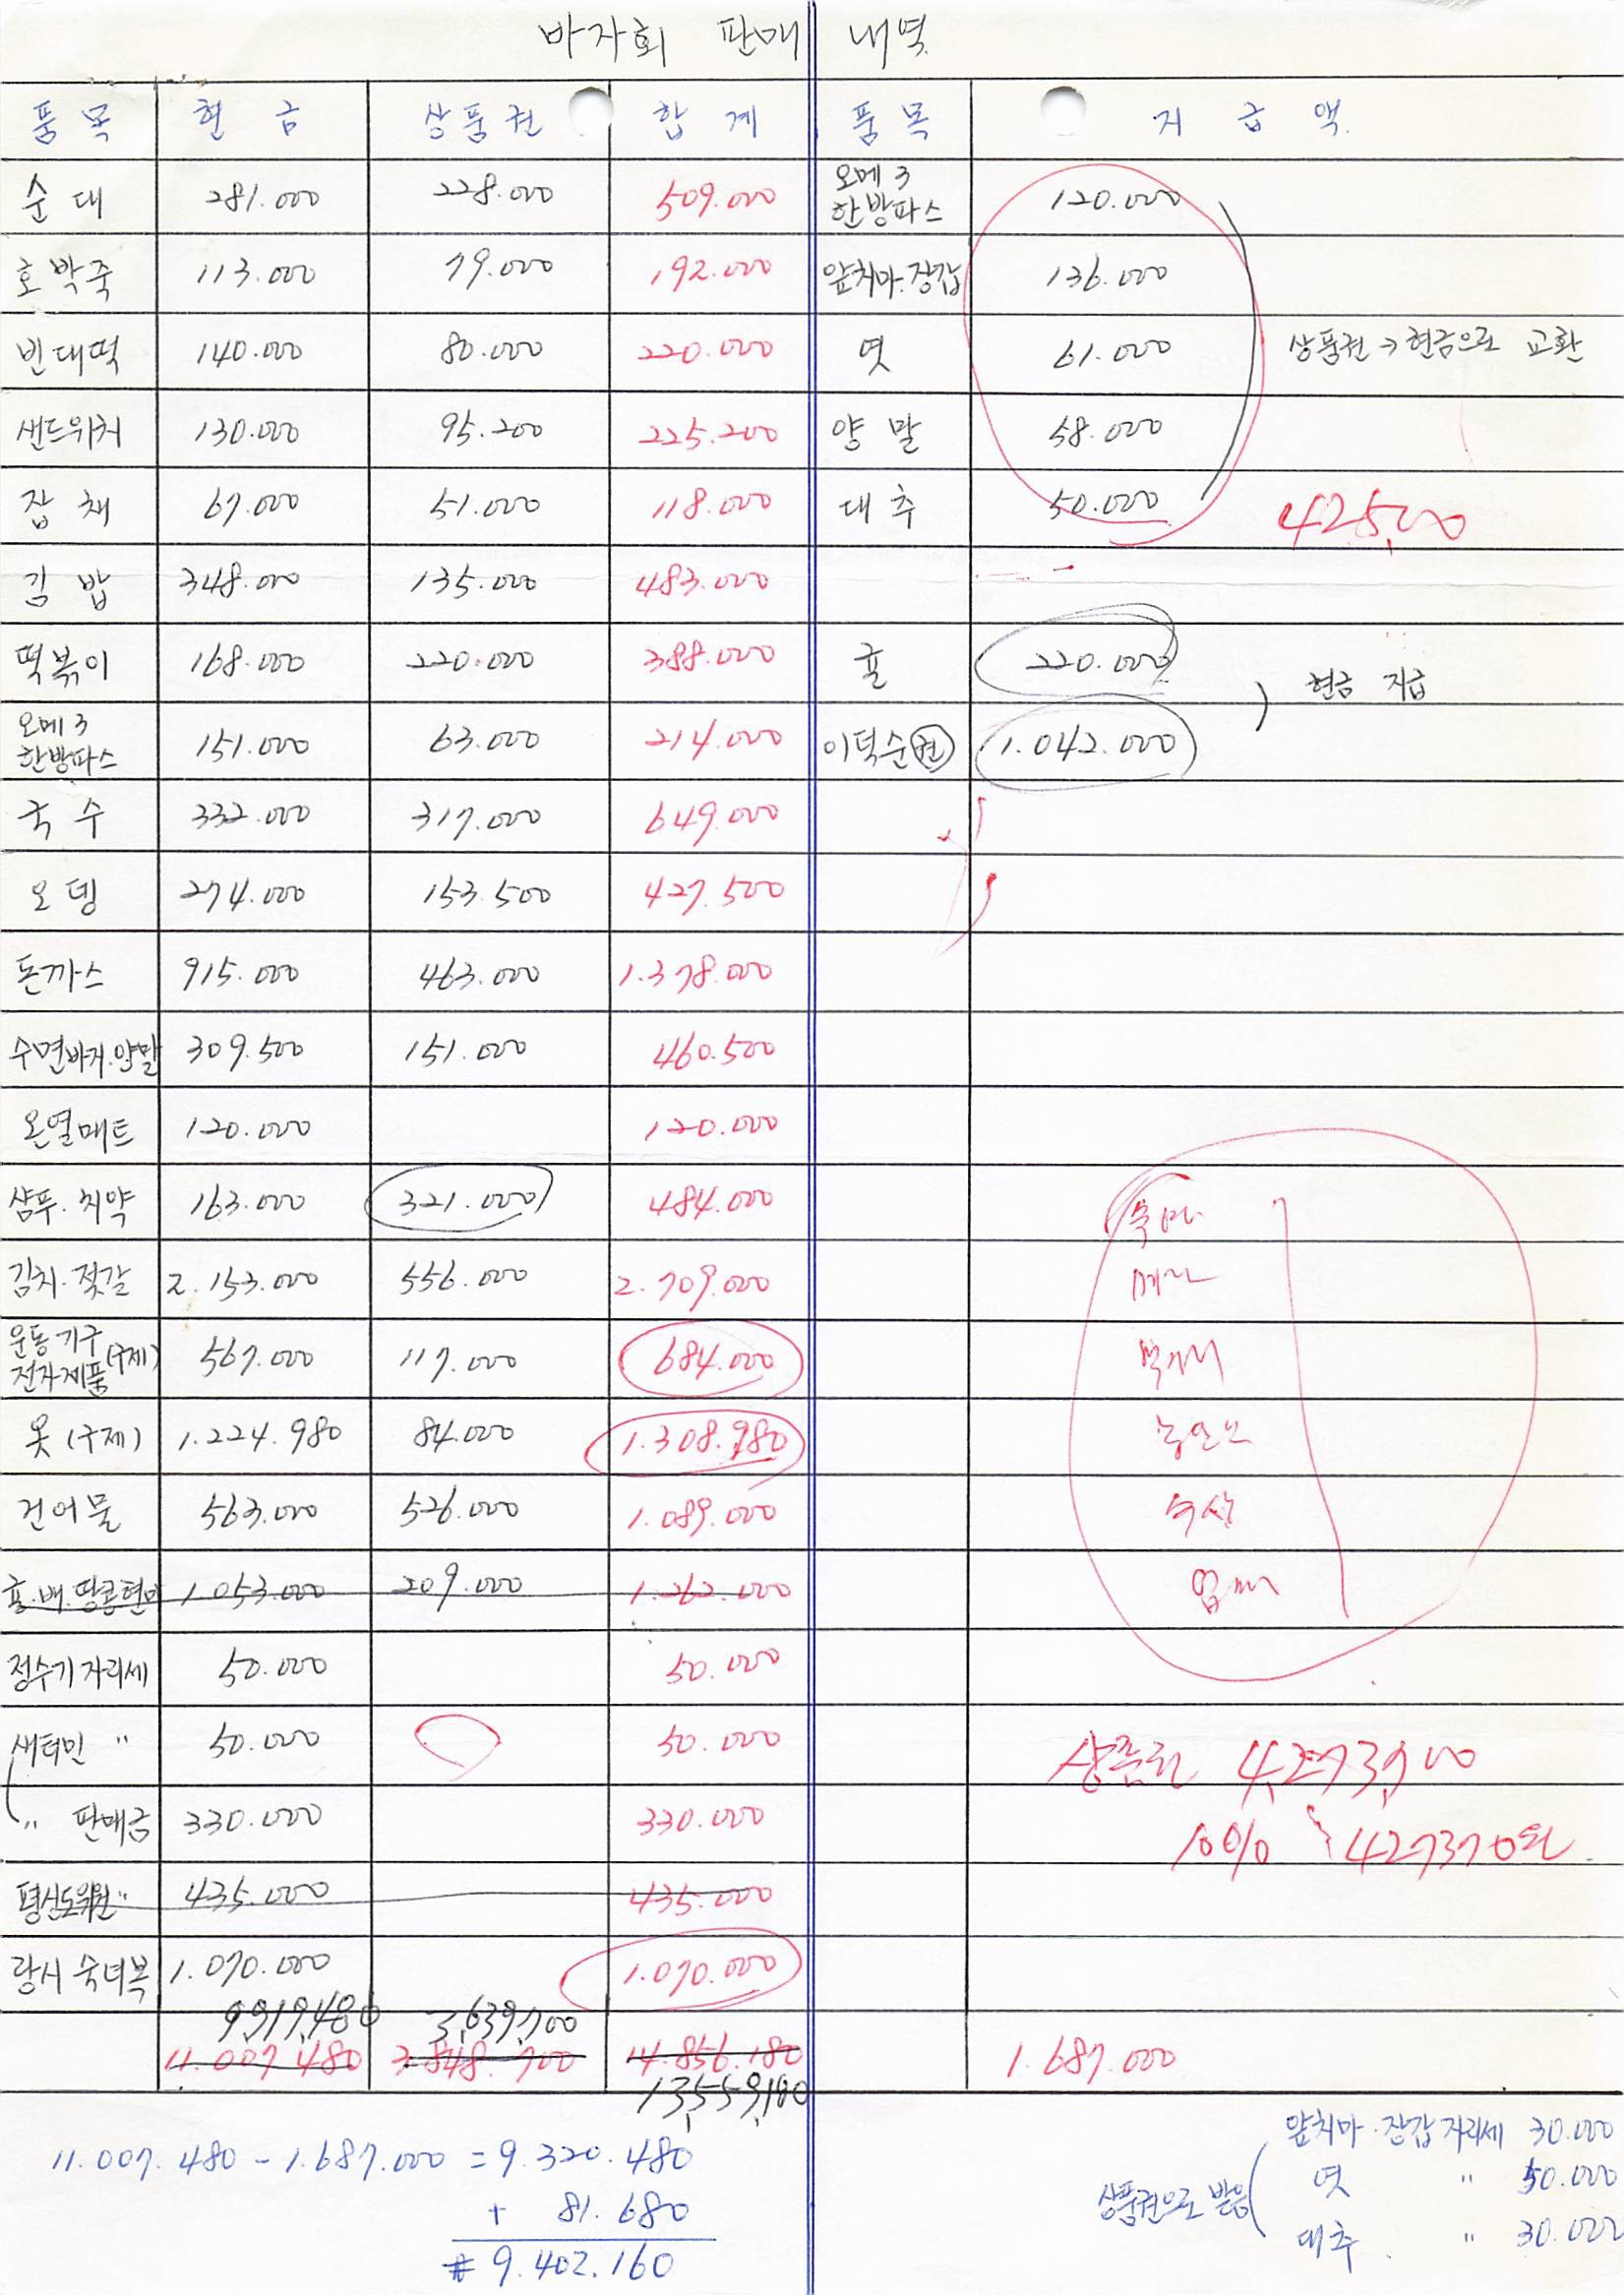 바자회 판매 내역
품목 현금 상품권 합계 품목 지급액
순대 281.000 228.000 509.000 오메3 한방파스 120.000
호박죽 113.000 79.000 192.000 앞치마.장갑 136.000
빈대떡 140.000 80.000 220.000 엿 61.000 상품권→현금으로 교환
샌드위치 130.000 95.200 225.200 양말 58.000
잡채 67.000 51.000 118.000 대추 50.000
김밥 348.000 135.000 483.000
떡볶이 168.000 220.000 388.000 귤 220.000 현금 지급
오메3 한방파스 151.000 63.000 214.000 이덕순권 1.042.000
국수 332.000 317.000 649.000
오뎅 274.000 153.500 427.500
돈까스 915.000 463.000 1.378.000
수면바지.양말 309.500 151.000 460.500
온열매트 120.000 120.000
샴푸.치약 163.000 321.000 484.000
김치.젓갈 2.153.000 556.000 2.709.000
운동기구 전자제품(구제) 567.000 117.000 684.000
옷(구제) 1.224.980 84.000 1.308.980
건어물 563.000 526.000 1.089.000
귤.배.땅콩현미 1.053.000 209.000 1.262.000
정수기 자리세 50.000 50.000
새터민 〃 50.000 50.000
〃 판매금 330.000 330.000
평신도위원〃 435.000 435.000
랑시 숙녀복 1.070.000 1.070.000
9,919,480 3,639,700
11.007.480 3.848.700 14.856.180 1.687.000
13,559,180
11.007.480 - 1.687.000 = 9.320.480
+ 81.680
# 9.402.160
상품권으로 받음
앞치마.장갑 자리세 30.000
엿 〃 50.000
대추 〃 30.000